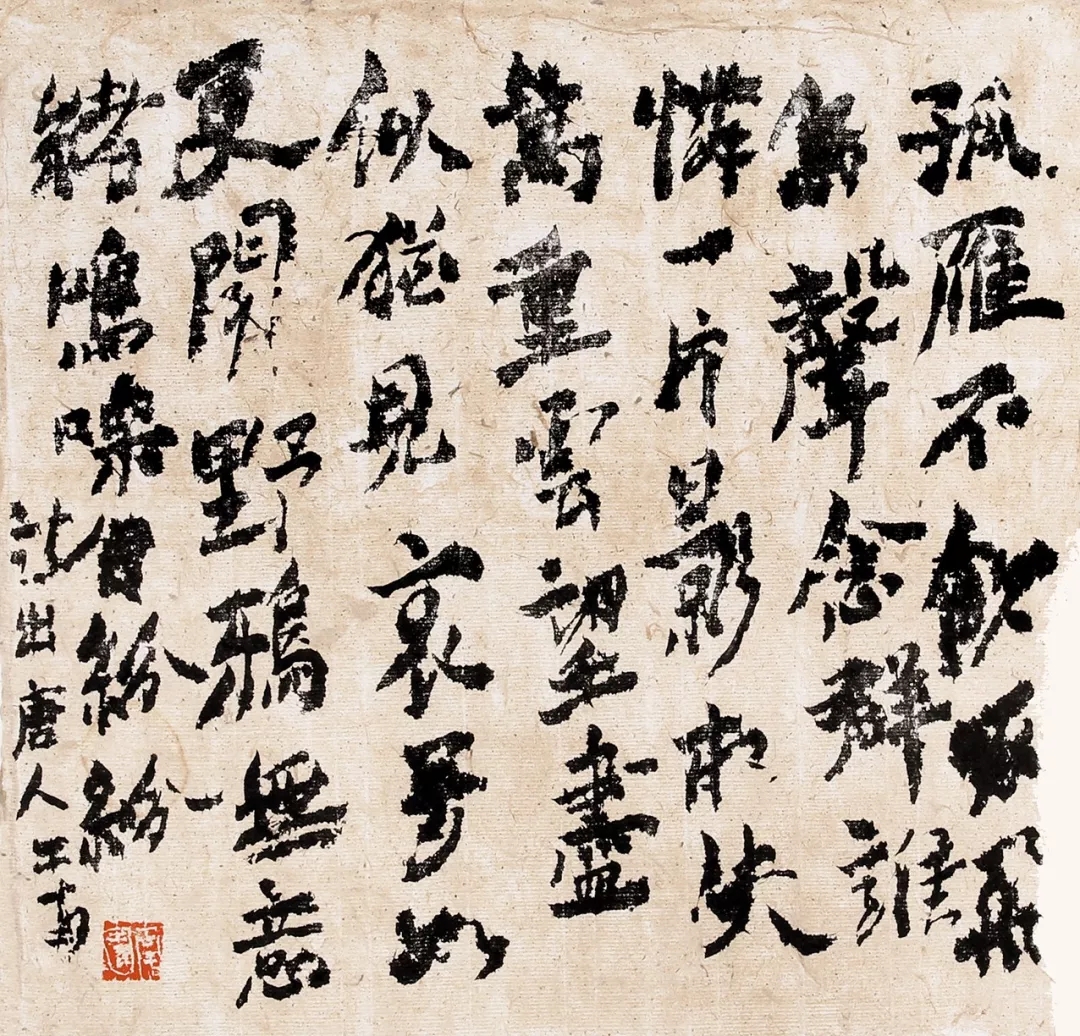 孤雁不飲啄飛
鳴聲念群誰
憐一片影相失
萬重雲望盡
似猶見哀多如
更聞野鴉無意
緒鳴噪自紛紛
出唐人